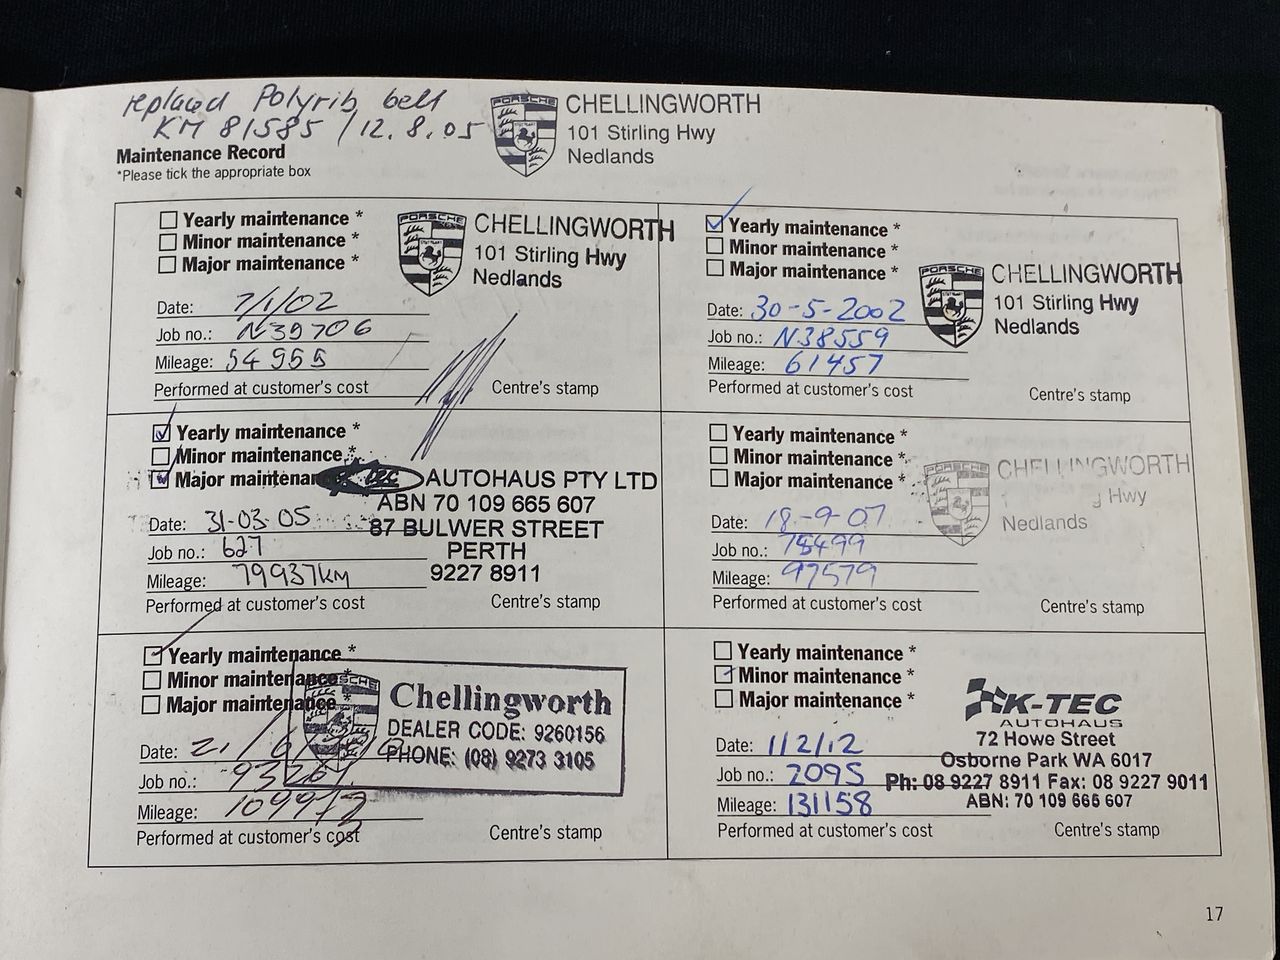 replaced Polyrib belt
KM 81585 / 12.8.05
PORSCHE
CHELLINGWORTH
101 Stirling Hwy
Nedlands
Maintenance Record
*Please tick the appropriate box
Yearly maintenance *
Minor maintenance *
Major maintenance *
PORSCHE
CHELLINGWORTH
101 Stirling Hwy
Nedlands
Date: 7/1/02
Job no.: N39706
Mileage: 54955
Performed at customer's cost
Centre's stamp
Yearly maintenance *
Minor maintenance *
Major maintenance *
PORSCHE
CHELLINGWORTH
101 Stirling Hwy
Nedlands
Date: 30-5-2002
Job no.: N38559
Mileage: 61457
Performed at customer's cost
Centre's stamp
Yearly maintenance *
Minor maintenance *
Major
AUTOHAUS PTY LTD
ABN 70 109 665 607
87 BULWER STREET
PERTH
9227 8911
Date: 31-03-05
Job no.: 627
Mileage: 79937KM
Performed at customer's cost
Centre's stamp
Yearly maintenance *
Minor maintenance *
Major maintenance *
CHELLINGWORTH
Hwy
Nedlands
Date: 18-9-07
Job no.: 78499
Mileage: 97579
Performed at customer's cost
Centre's stamp
Yearly maintenance *
Minor maintenance *
Major maintenance *
Chellingworth
DEALER CODE: 9260156
PHONE: (08) 9273 3105
Date:
Job no.:
Mileage:
Performed at customer's cost
Centre's stamp
Yearly maintenance *
Minor maintenance *
Major maintenance *
K-TEC
AUTOHAUS
72 Howe Street
Osborne Park WA 6017
Ph: 08 9227 8911 Fax: 08 9227 9011
ABN: 70 109 665 607
Date: 1/2/12
Job no.: 2095
Mileage: 131158
Performed at customer's cost
Centre's stamp
17